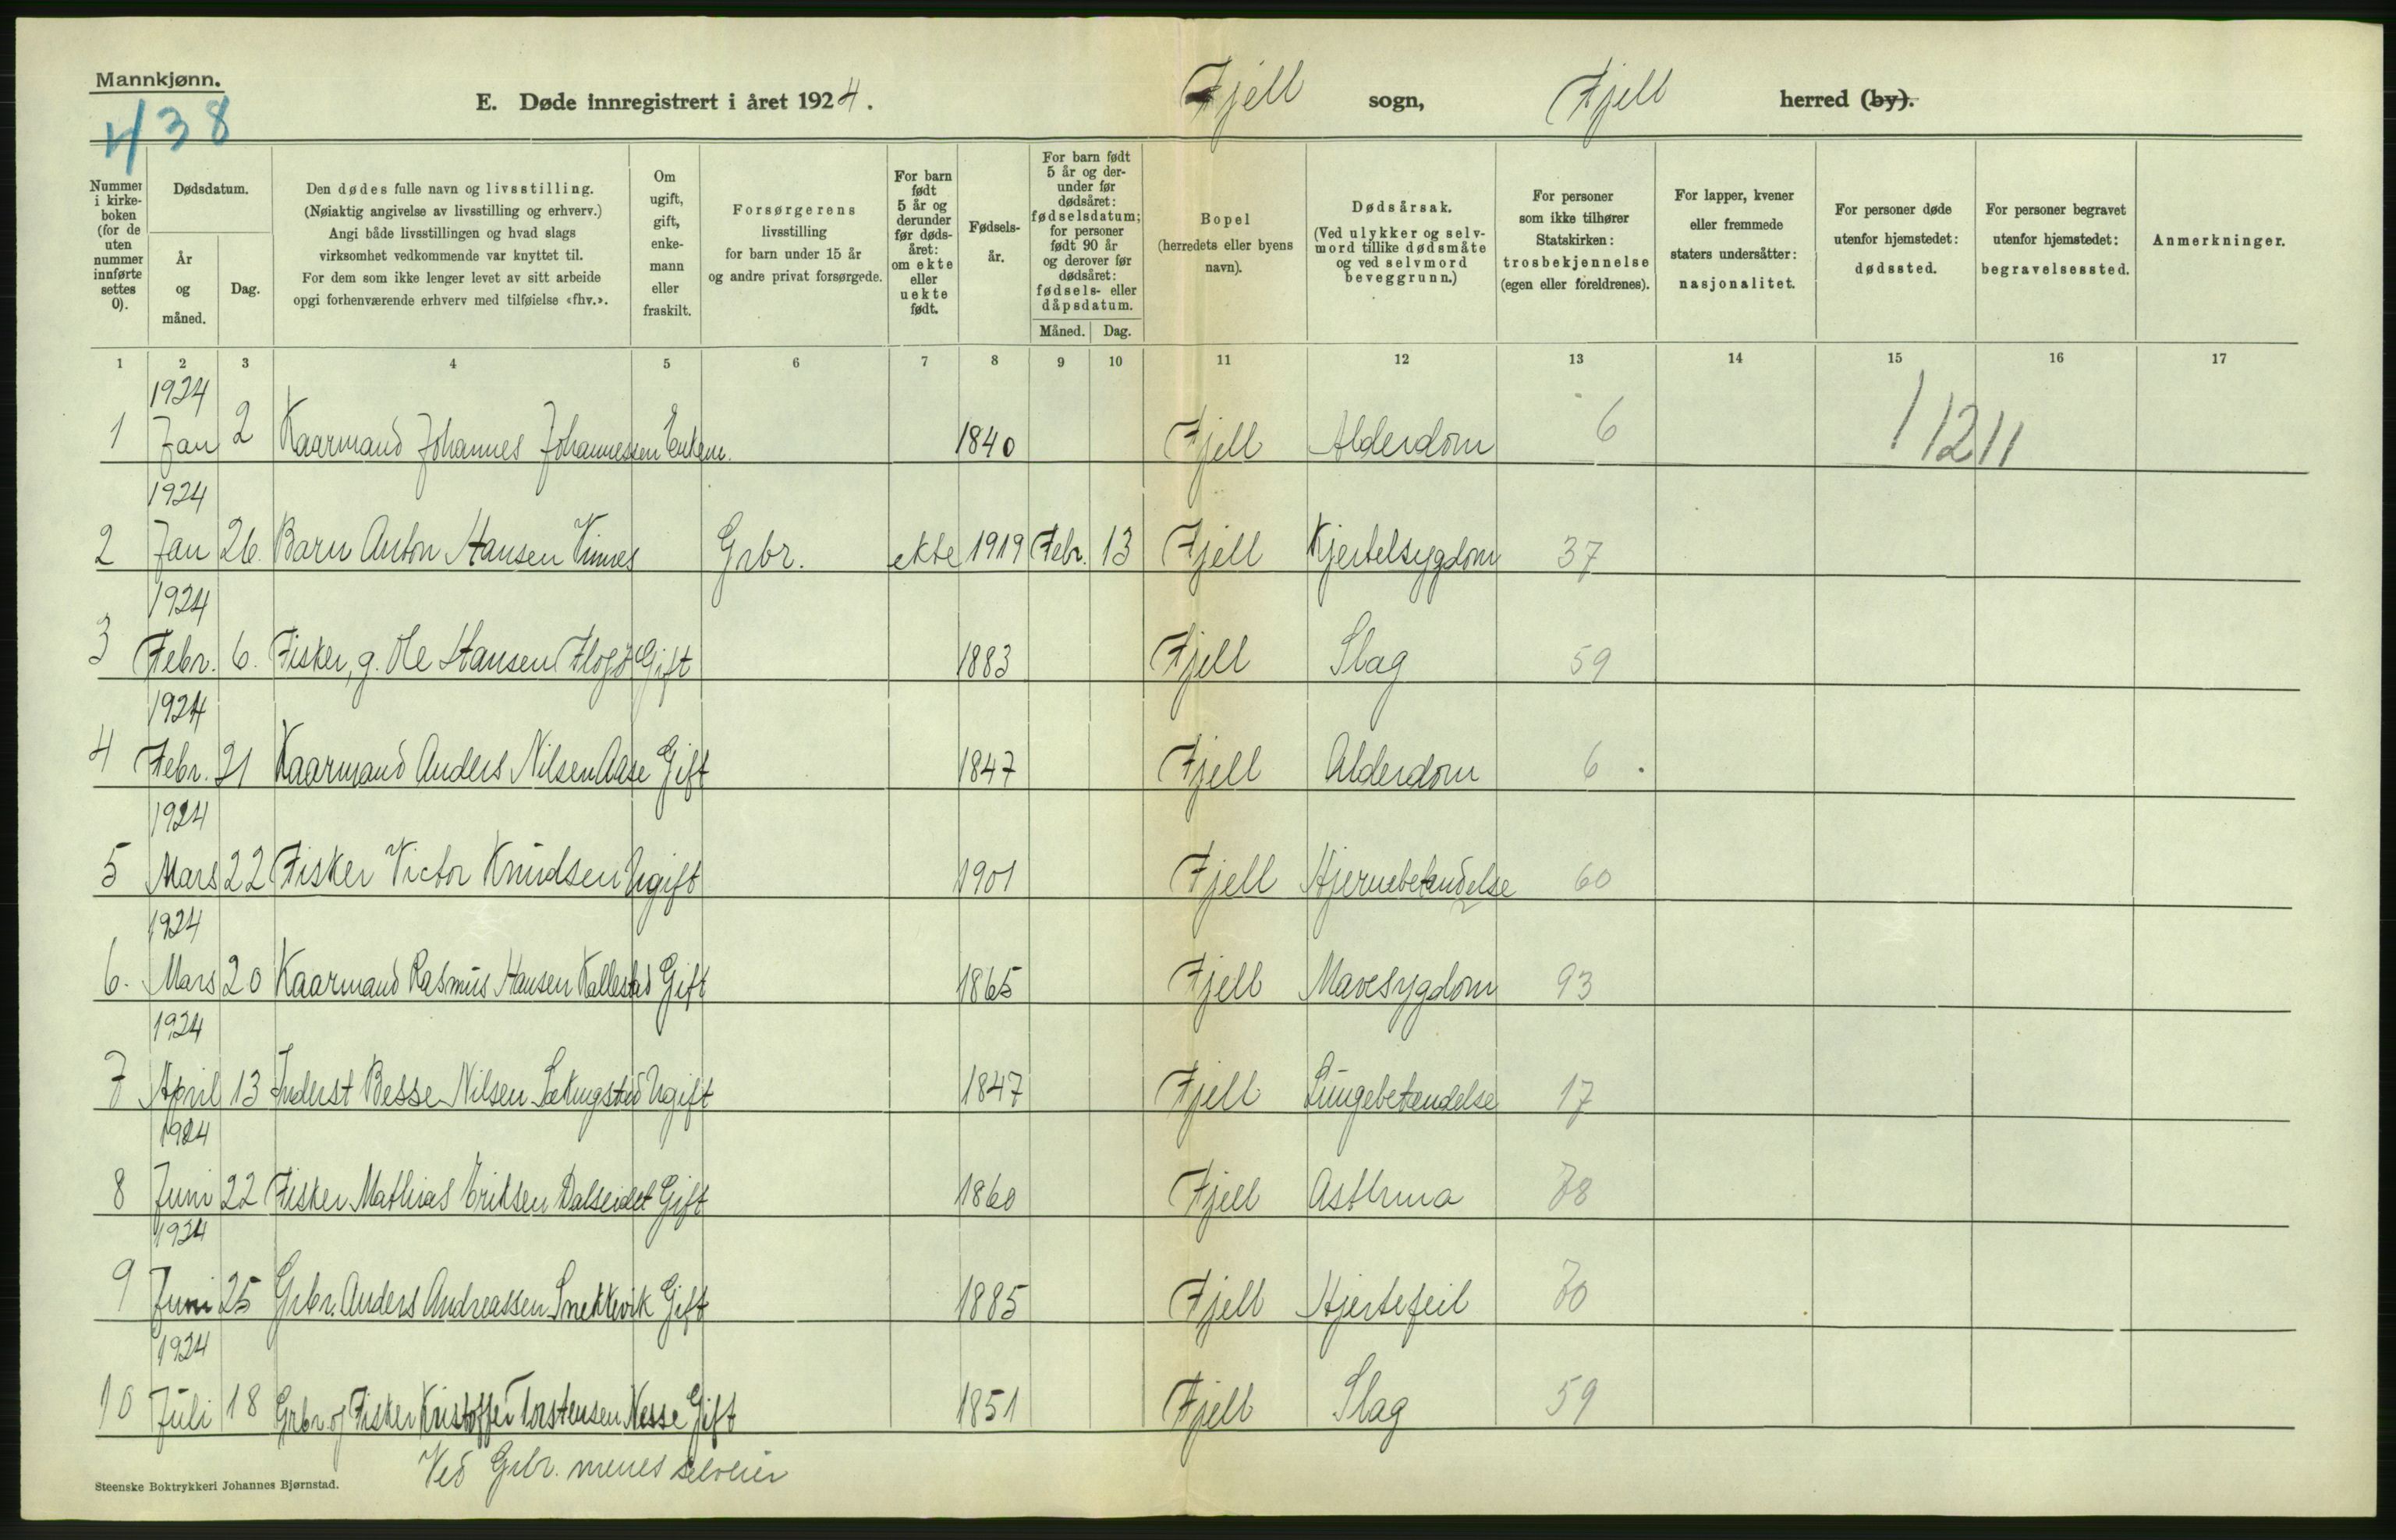 Mannkjønn.
438
E. Døde innregistrert i året 1924.
Fjell sogn, Fjell herred (by).
Nummer i kirkeboken (for de uten nummer innførte settes 0).
Dødsdatum.
År og måned.
Dag.
Den dødes fulle navn og livsstilling.
(Nøiaktig angivelse av livsstilling og erhverv.)
Angi både livsstillingen og hvad slags
virksomhet vedkommende var knyttet til.
For dem som ikke lenger levet av sitt arbeide
opgi forhenværende erhverv med tilføielse «fhv.».
Om ugift, gift, enkemann eller fraskilt.
Forsørgerens
livsstilling
for barn under 15 år
og andre privat forsørgede.
For barn født 5 år og derunder før dødsåret: om ekte eller uekte født.
Fødselsår.
For barn født 5 år og derunder før dødsåret: fødselsdatum; for personer født 90 år og derover før dødsåret: fødsels- eller dåpsdatum.
Måned. Dag.
Bopel
(herredets eller byens
navn).
Dødsårsak.
(Ved ulykker og selvmord tillike dødsmåte
og ved selvmord
beveggrunn.)
For personer
som ikke tilhører
Statskirken:
trosbekjennelse
(egen eller foreldrenes).
For lapper, kvener
eller fremmede
staters undersåtter:
nasjonalitet.
For personer døde
utenfor hjemstedet:
dødssted.
For personer begravet
utenfor hjemstedet:
begravelsessted.
Anmerkninger.
1 2 3 4 5 6 7 8 9 10 11 12 13 14 15 16 17
1924
1 Jan 2 Kaarmand Johannes Johannessen Enkem. 1840 Fjell Alderdom 6 1 12 11
1924
2 Jan 26. Barn Anton Hansen Vinnes Grbr. ekte 1919 Febr. 13 Fjell Kjertelsygdom 37
1924
3 Febr. 6. Fisker, g. Ole Hansen Flogø Gift 1883 Fjell Slag 59
1924
4 Febr. 21 Kaarmand Anders Nilsen Aase Gift 1847 Fjell Alderdom 6
1924
5 Mars 22 Fisker Victor Knudsen Ugift 1901 Fjell Hjernebetendelse 60
1924
6. Mars 20 Kaarmand Rasmus Hansen Kallestad Gift 1865 Fjell Mavesygdom 93
1924
7 April 13 Inderst Besse Nilsen Sekingstad Ugift 1847 Fjell Lungebetendelse 17
1924
8 Juni 22 Fisker Mathias Eriksen Dalseidet Gift 1860 Fjell Asthma 78
1924
9 Juni 25 Grbr. Anders Andreassen Snekkevik Gift 1885 Fjell Hjertefeil 70
1924
10 Juli 18 Grbr og Fisker Kristoffer Torstensen Nesse Gift 1851 Fjell Slag 59
Ved Grbr. menes selveier
Steenske Boktrykkeri Johannes Bjørnstad.